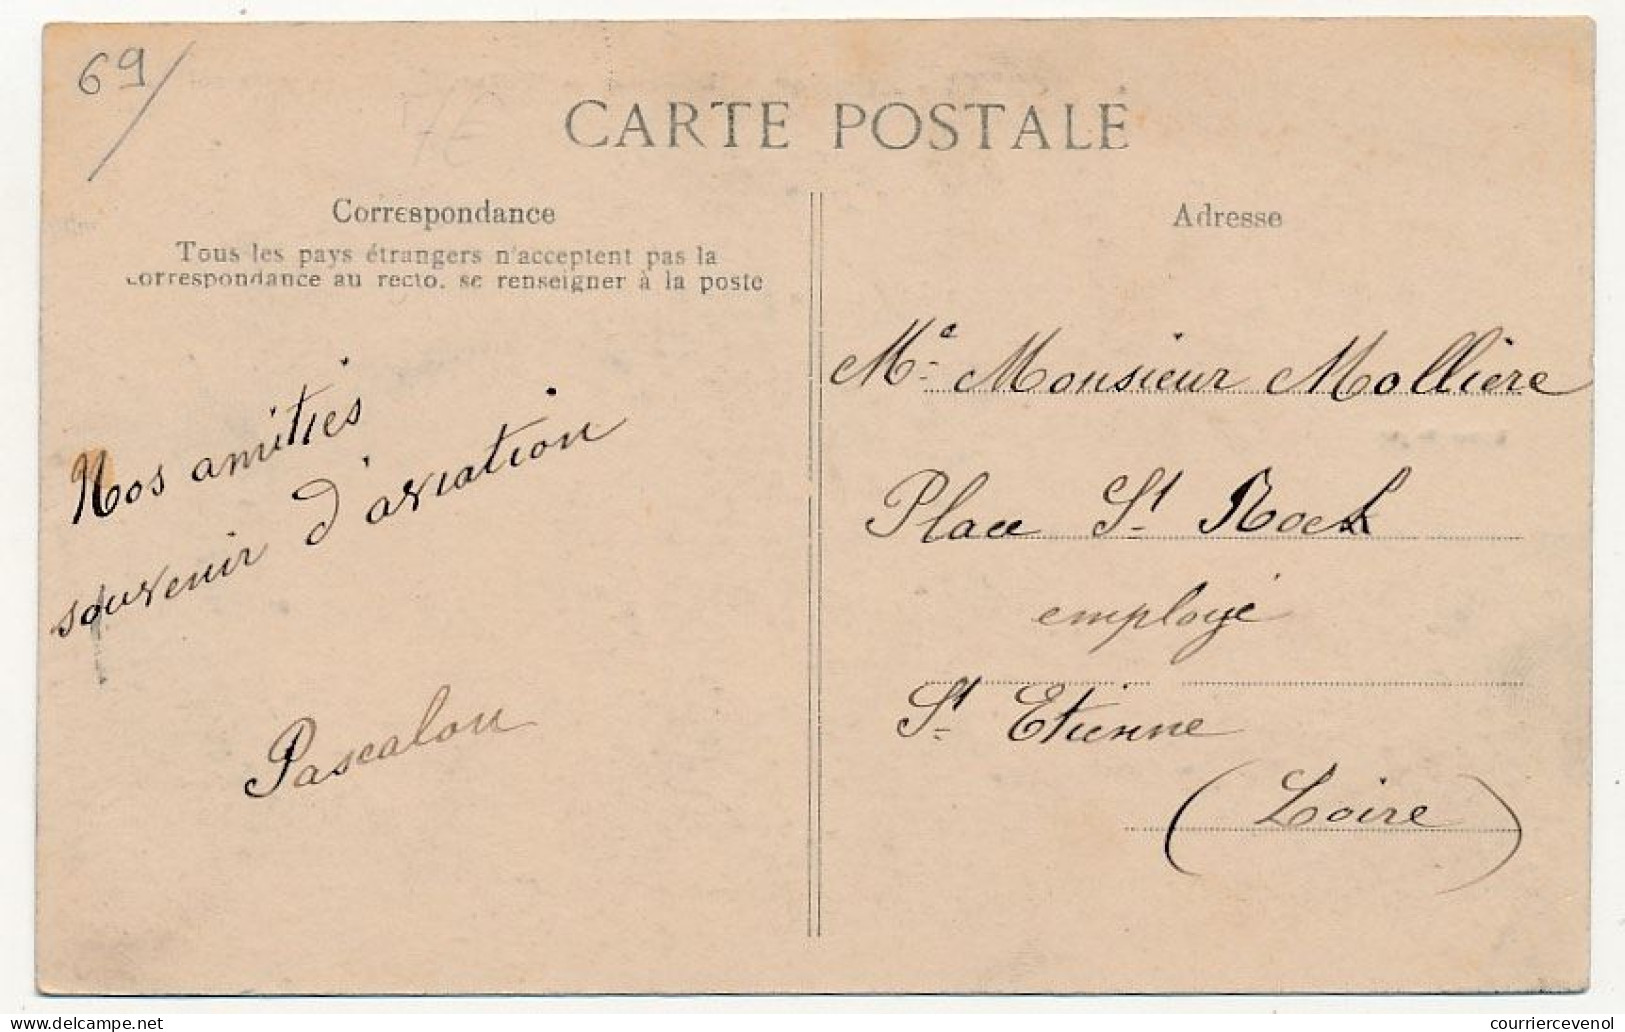 69/
7€
CARTE POSTALE
Correspondance
Tous les pays étrangers n'acceptent pas la
correspondance au recto. se renseigner à la poste
Nos amitiés
souvenir d'aviation
Pascalon
Adresse
Me Monsieur Mollière
Place St Roch
employé
St Etienne
(Loire)
www.delcampe.net
courriercevenol